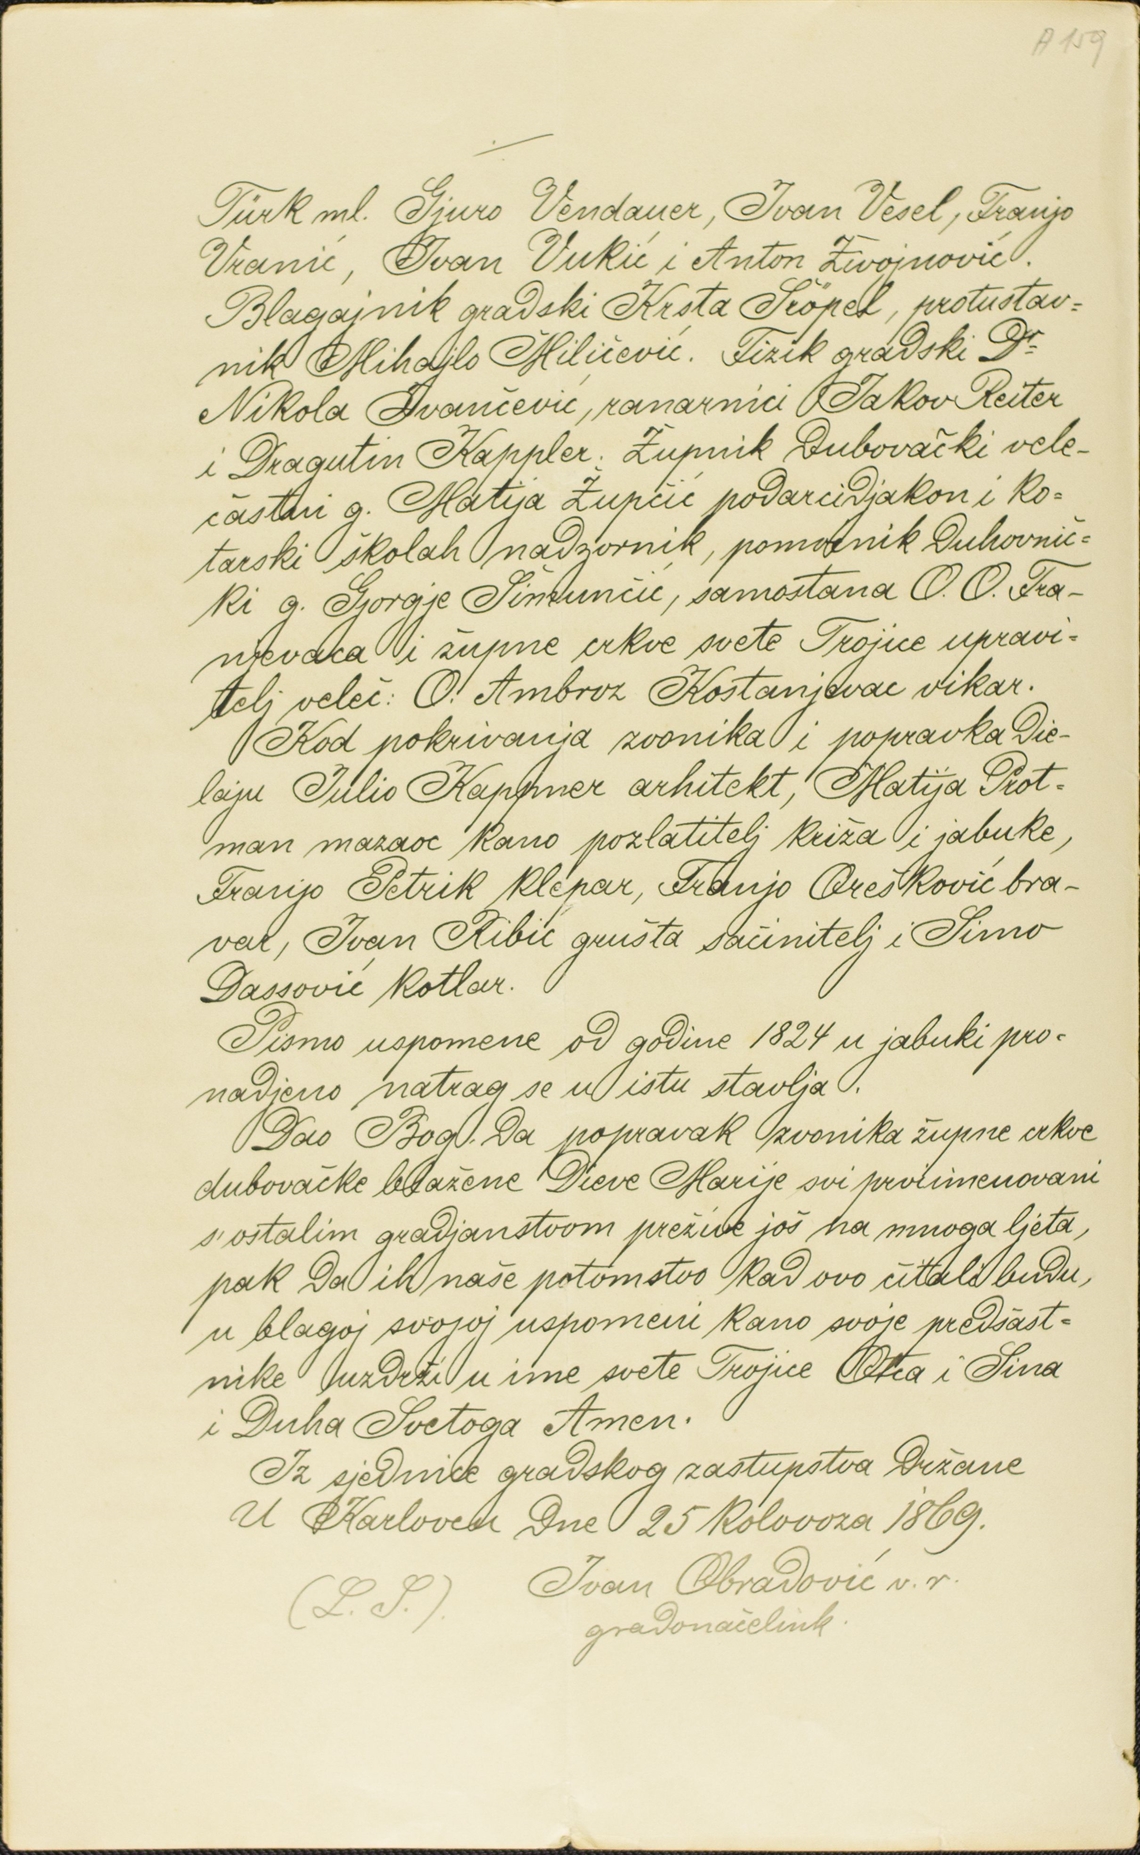 A 159
./.
Türk ml. Gjuro Vendauer, Ivan Vesel, Franjo
Vranić, Ivan Vukić i Anton Živojnović.
Blagajnik gradski Krsta Šröpel, protustav=
nik Mihajlo Miličević. Fizik gradski Dr.
Nikola Ivančević, ranarnici Jakov Reiter
i Dragutin Kappler. Župnik Dubovački vele-
častni g. Matija Župčić podarcidjakon i ko=
tarski školah nadzornik, pomoćnik Duhovnič=
ki g. Gjorgje Šimunčić, samostana O. O. Fra-
njevaca i župne crkve svete Trojice upravi=
telj veleč: O. Ambroz Kostanjevac vikar.
Kod pokrivanja zvonika i popravka Die-
laju Julio Kappner arhitekt, Matija Prot=
man mazaoc kano pozlatitelj križa i jabuke,
Franjo Petrik klepar, Franjo Orešković bra-
var, Ivan Ribić grušta sačinitelj i Simo
Dassović kotlar.
Pismo uspomene od godine 1824 u jabuki pro=
nadjeno natrag se u istu stavlja.
Dao Bog. Da popravak zvonika župne crkve
dubovačke blažene Dieve Marije svi prvoimenovani
s' ostalim gradjanstvom prežive još na mnoga ljeta,
pak Da ih naše potomstvo kad ovo čitali budu,
u blagoj svojoj uspomeni kano svoje predšast=
nike uzdrži u ime svete Trojice Otca i Sina
i Duha Svetoga Amen.
Iz sjednice gradskog zastupstva Držane
U Karlovcu Dne 25 Kolovoza 1869.
Ivan Obradović v. r.
(L. S.).
gradonačelink.